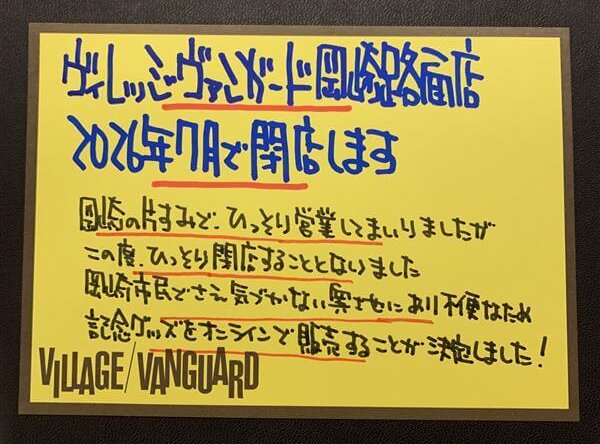 ヴィレッジヴァンガード岡崎路面店
2026年7月で閉店します
岡崎の片すみで、ひっそり営業してまいりましたが
この度、ひっそり閉店することとなりました
岡崎市民でさえ気づかない奥地にあり不便なため
記念グッズをオンラインで販売することが決定しました！
VILLAGE/VANGUARD